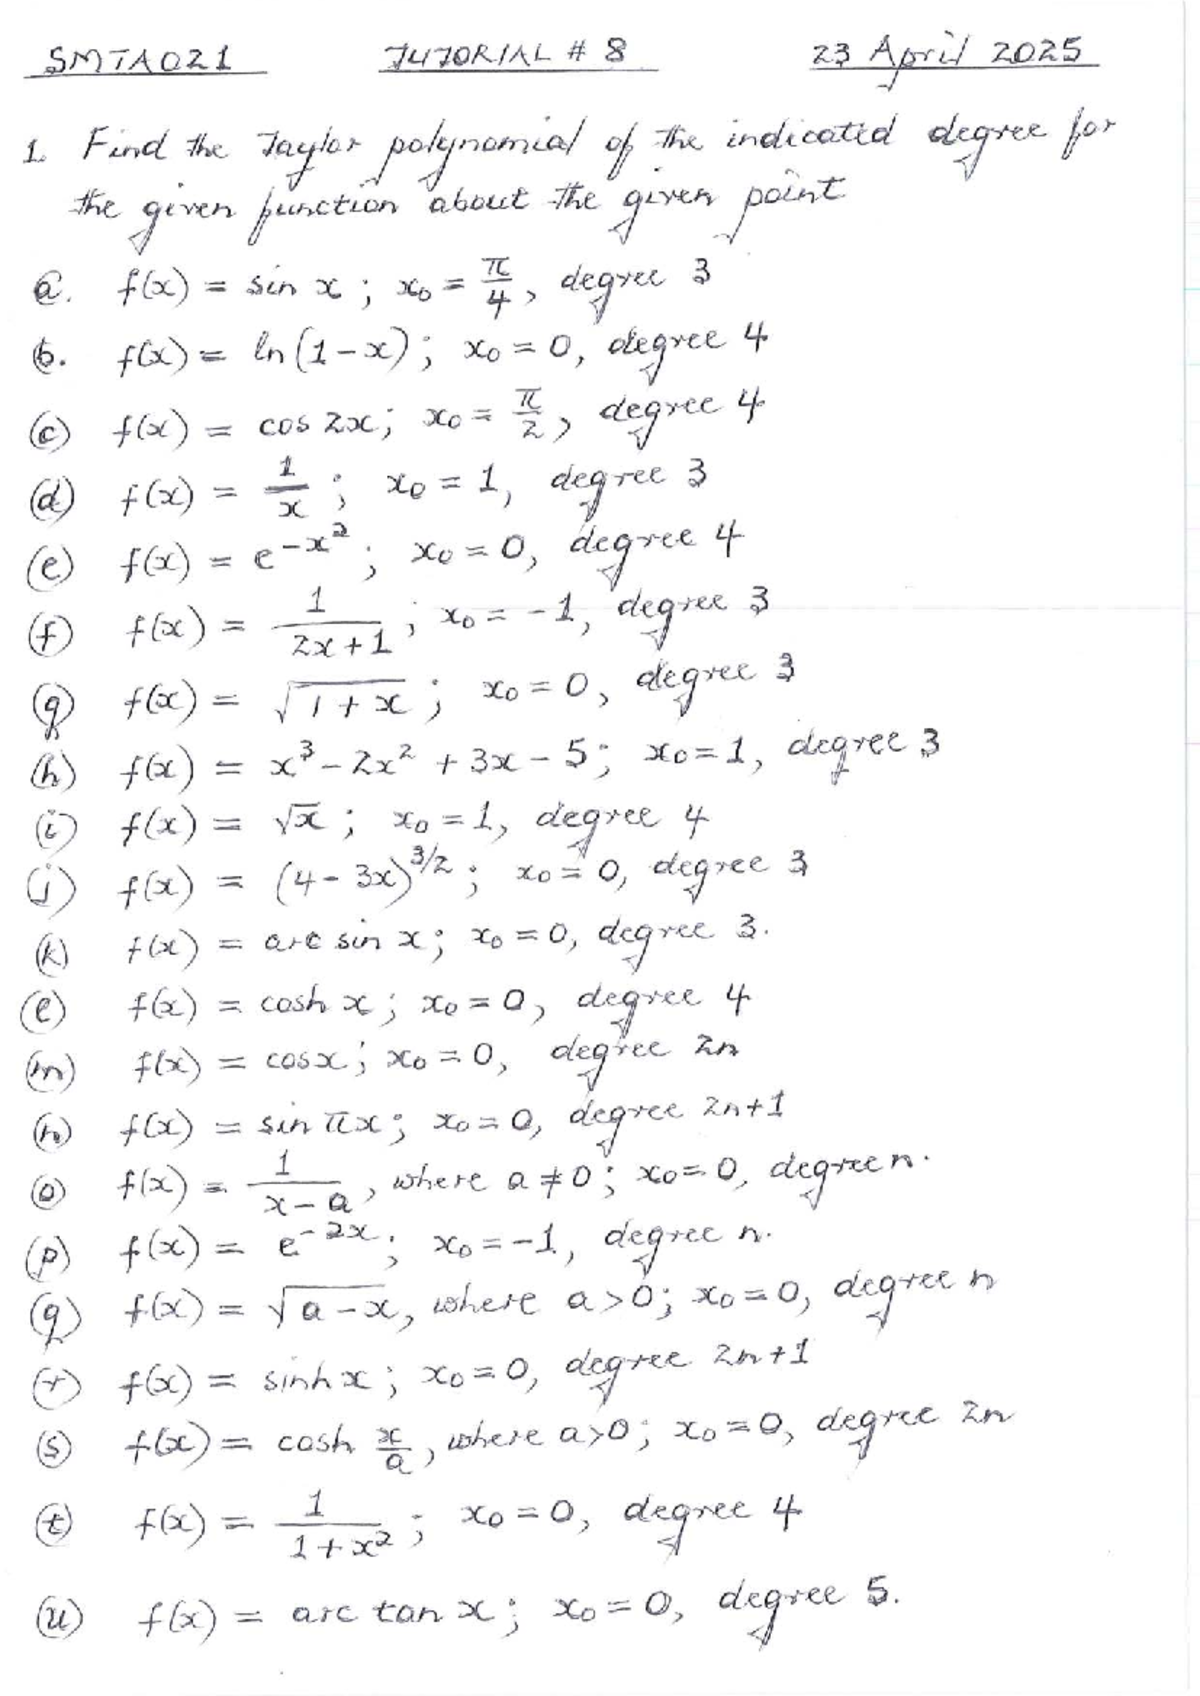 SMTA021 TUTORIAL # 8 23 April 2025
1. Find the Taylor polynomial of the indicated degree for
the given function about the given point
a. f(x) = sin x ; x₀ = π/4, degree 3
b. f(x) = ln(1-x); x₀ = 0, degree 4
(c) f(x) = cos 2x; x₀ = π/2, degree 4
(d) f(x) = 1/x ; x₀ = 1, degree 3
(e) f(x) = e^{-x²}; x₀ = 0, degree 4
(f) f(x) = 1/(2x+1) ; x₀ = -1, degree 3
(g) f(x) = √(1+x) ; x₀ = 0, degree 3
(h) f(x) = x³ - 2x² + 3x - 5; x₀ = 1, degree 3
(i) f(x) = √x ; x₀ = 1, degree 4
(j) f(x) = (4 - 3x)^{3/2} ; x₀ = 0, degree 3
(k) f(x) = arc sin x; x₀ = 0, degree 3.
(l) f(x) = cosh x ; x₀ = 0, degree 4
(m) f(x) = cos x ; x₀ = 0, degree 2n
(n) f(x) = sin πx ; x₀ = 0, degree 2n+1
(o) f(x) = 1/(x-a), where a ≠ 0 ; x₀ = 0, degree n.
(p) f(x) = e^{-2x}; x₀ = -1, degree n.
(q) f(x) = √(a-x), where a > 0; x₀ = 0, degree n
(r) f(x) = sinh x ; x₀ = 0, degree 2n+1
(s) f(x) = cosh x/a, where a > 0 ; x₀ = 0, degree 2n
(t) f(x) = 1/(1+x²) ; x₀ = 0, degree 4
(u) f(x) = arc tan x ; x₀ = 0, degree 5.